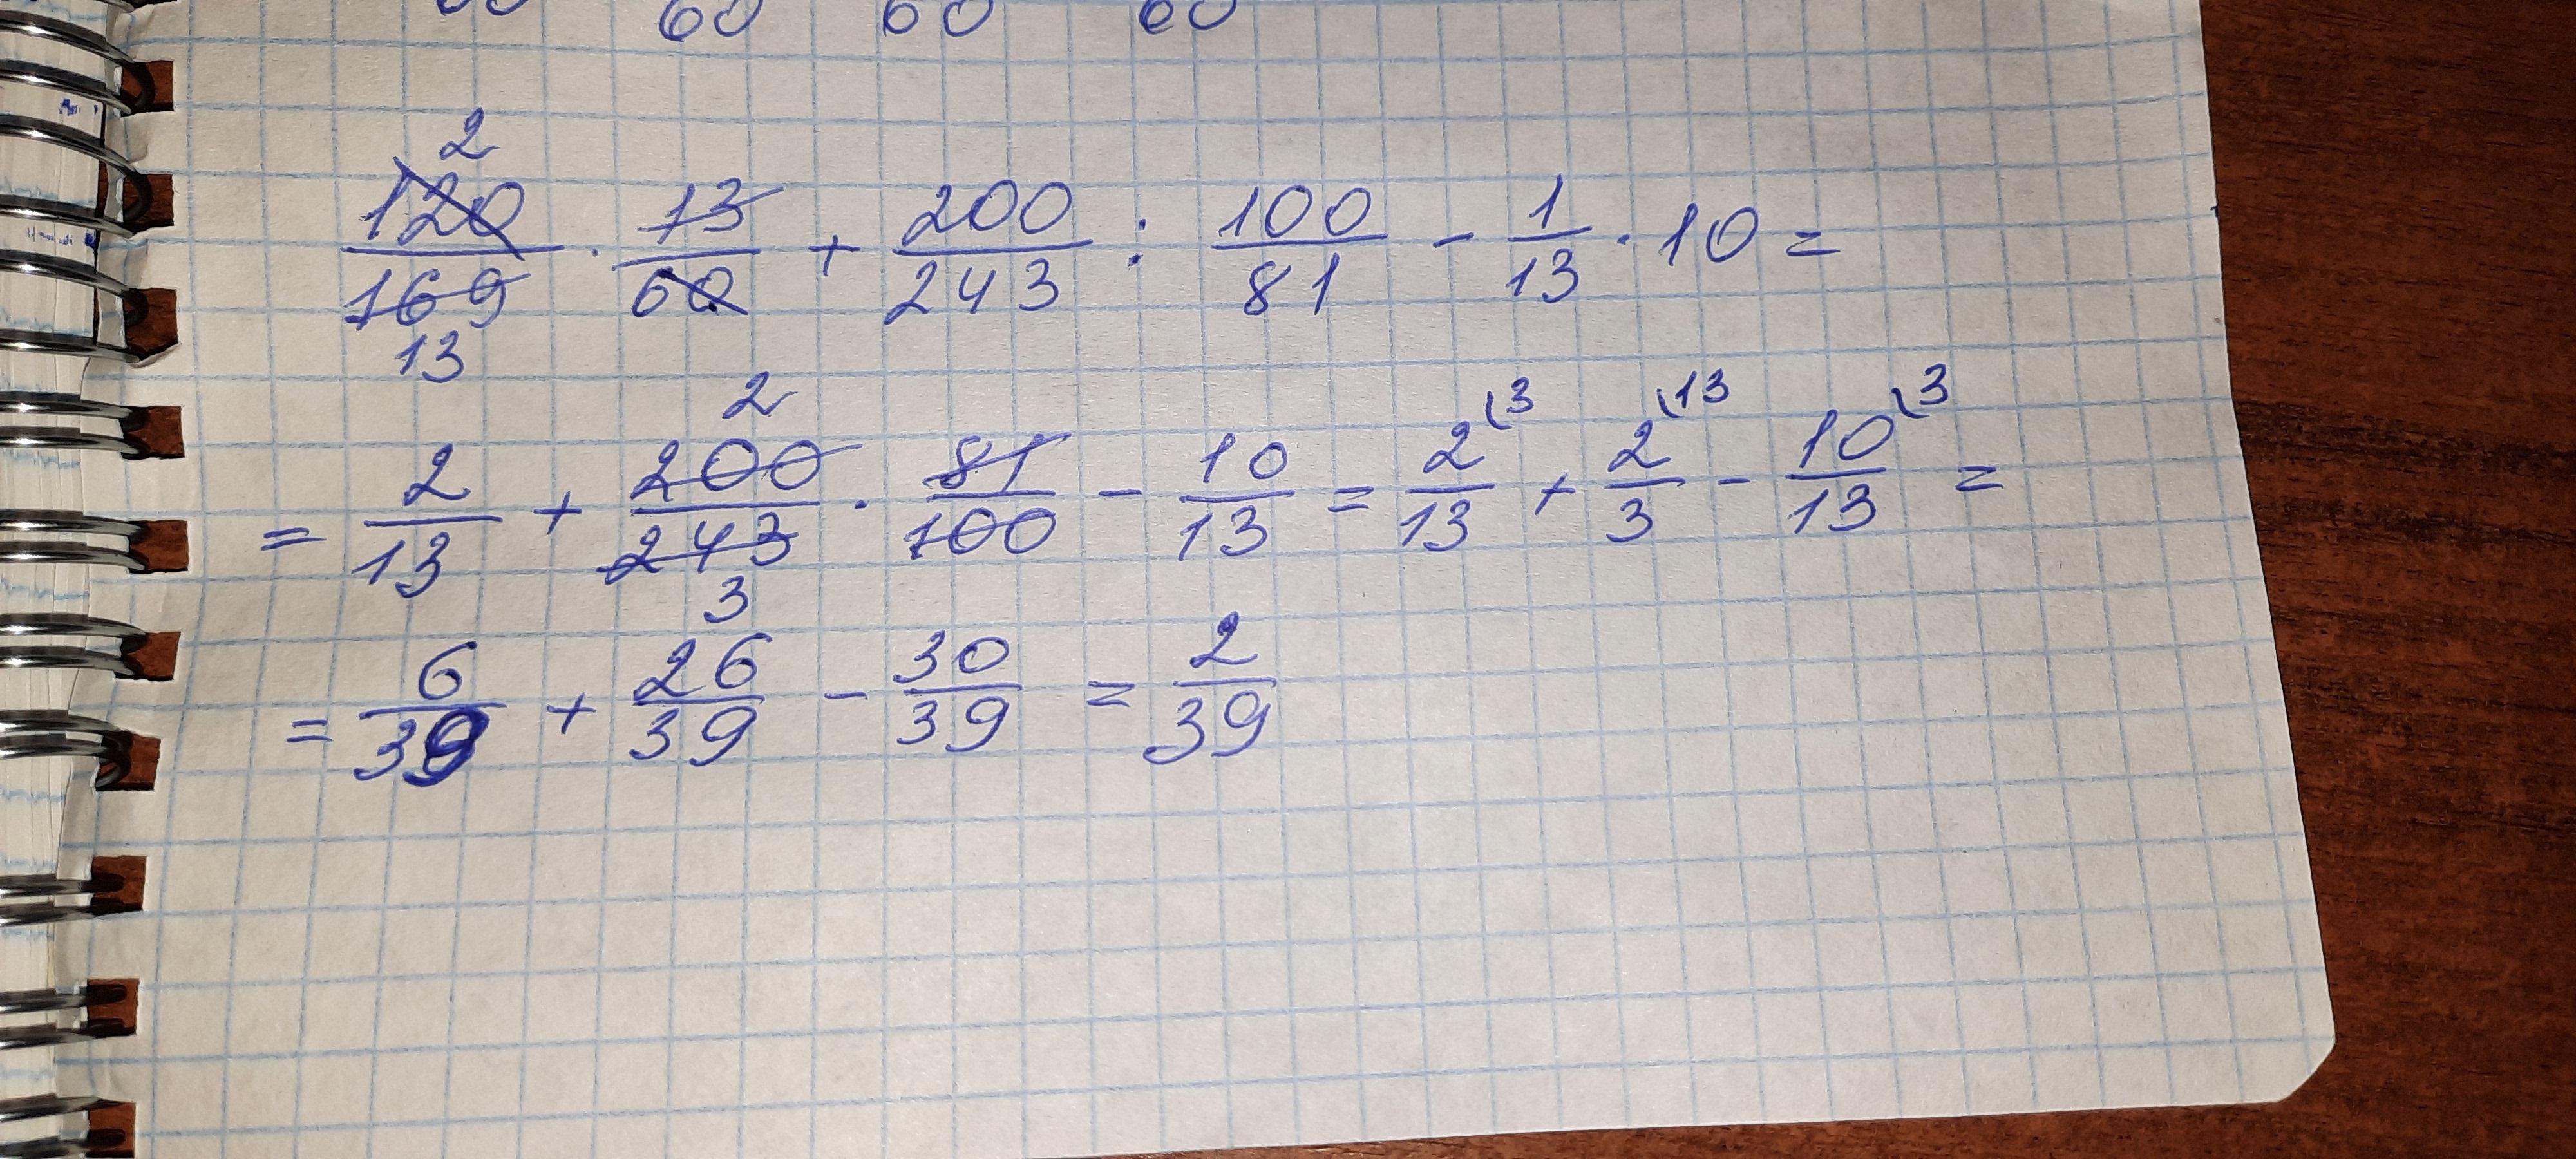 60 60 60
120/169 · 13/60 + 200/243 : 100/81 - 1/13 · 10 =
2
13
= 2/13 + 200/243 · 81/100 - 10/13 = 2/13 \3 + 2/3 \13 - 10/13 \3 =
2
3
= 6/39 + 26/39 - 30/39 = 2/39